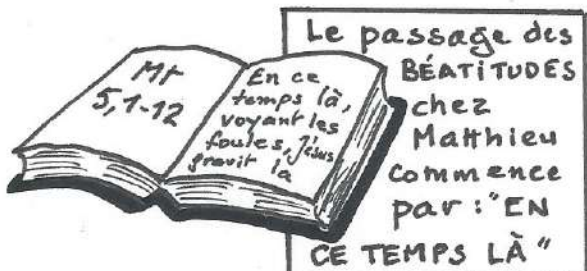 Mt
5,1-12
En ce
temps là,
voyant les
foules, Jésus
gravit la
Le passage des
BÉATITUDES
chez
Matthieu
commence
par : "EN
CE TEMPS LÀ"